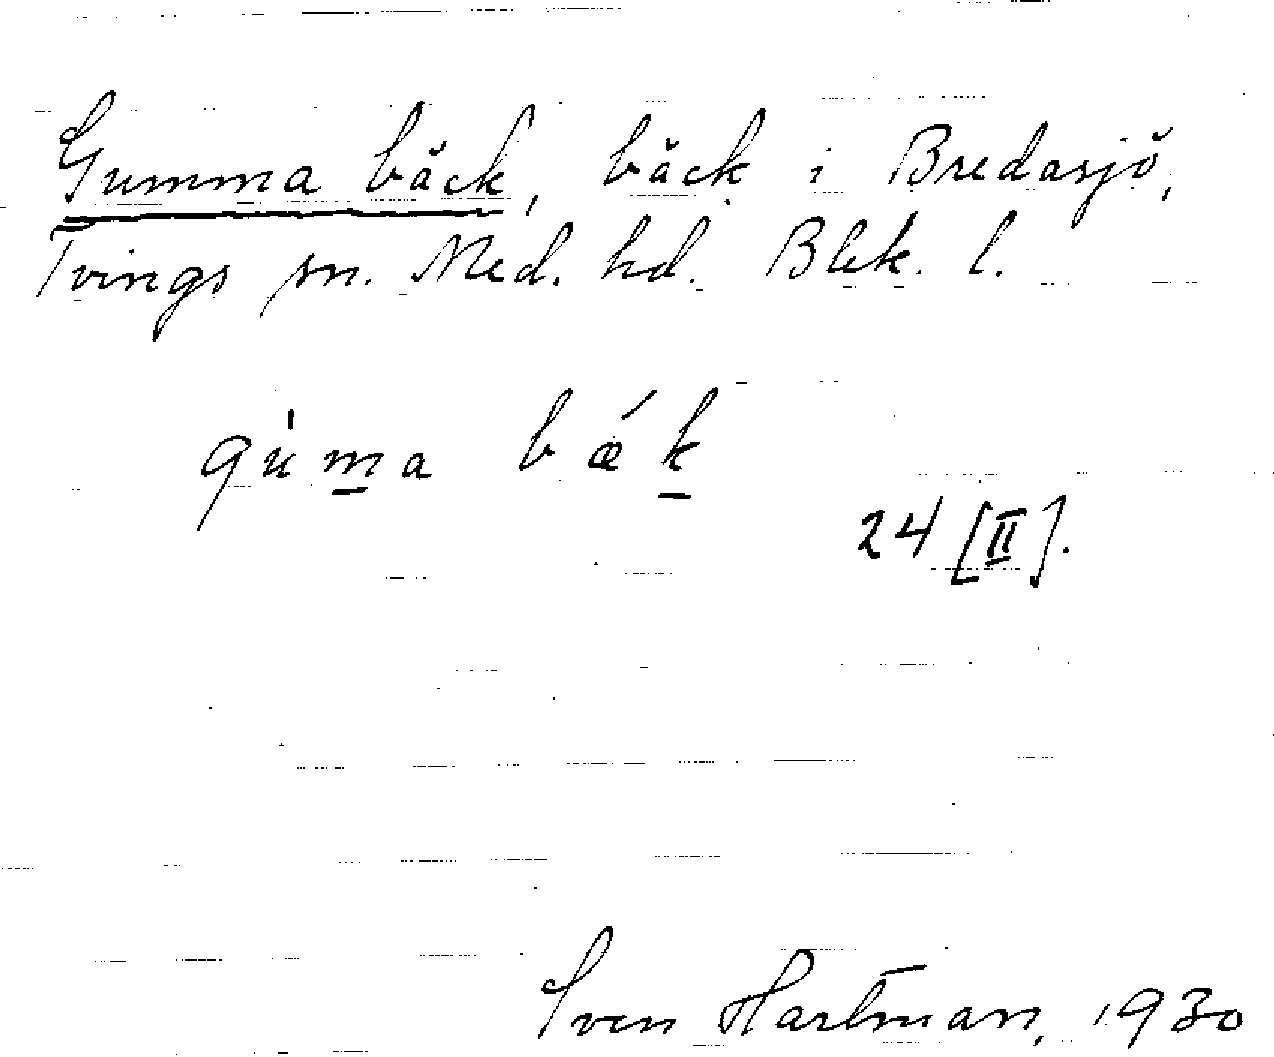 Gumma bäck, bäck i Bredasjö,
Tvings sn. Med. hd. Blek. l.
gu̍m̲a bǽk̲
24 [II].
Sven Hartman, 1930